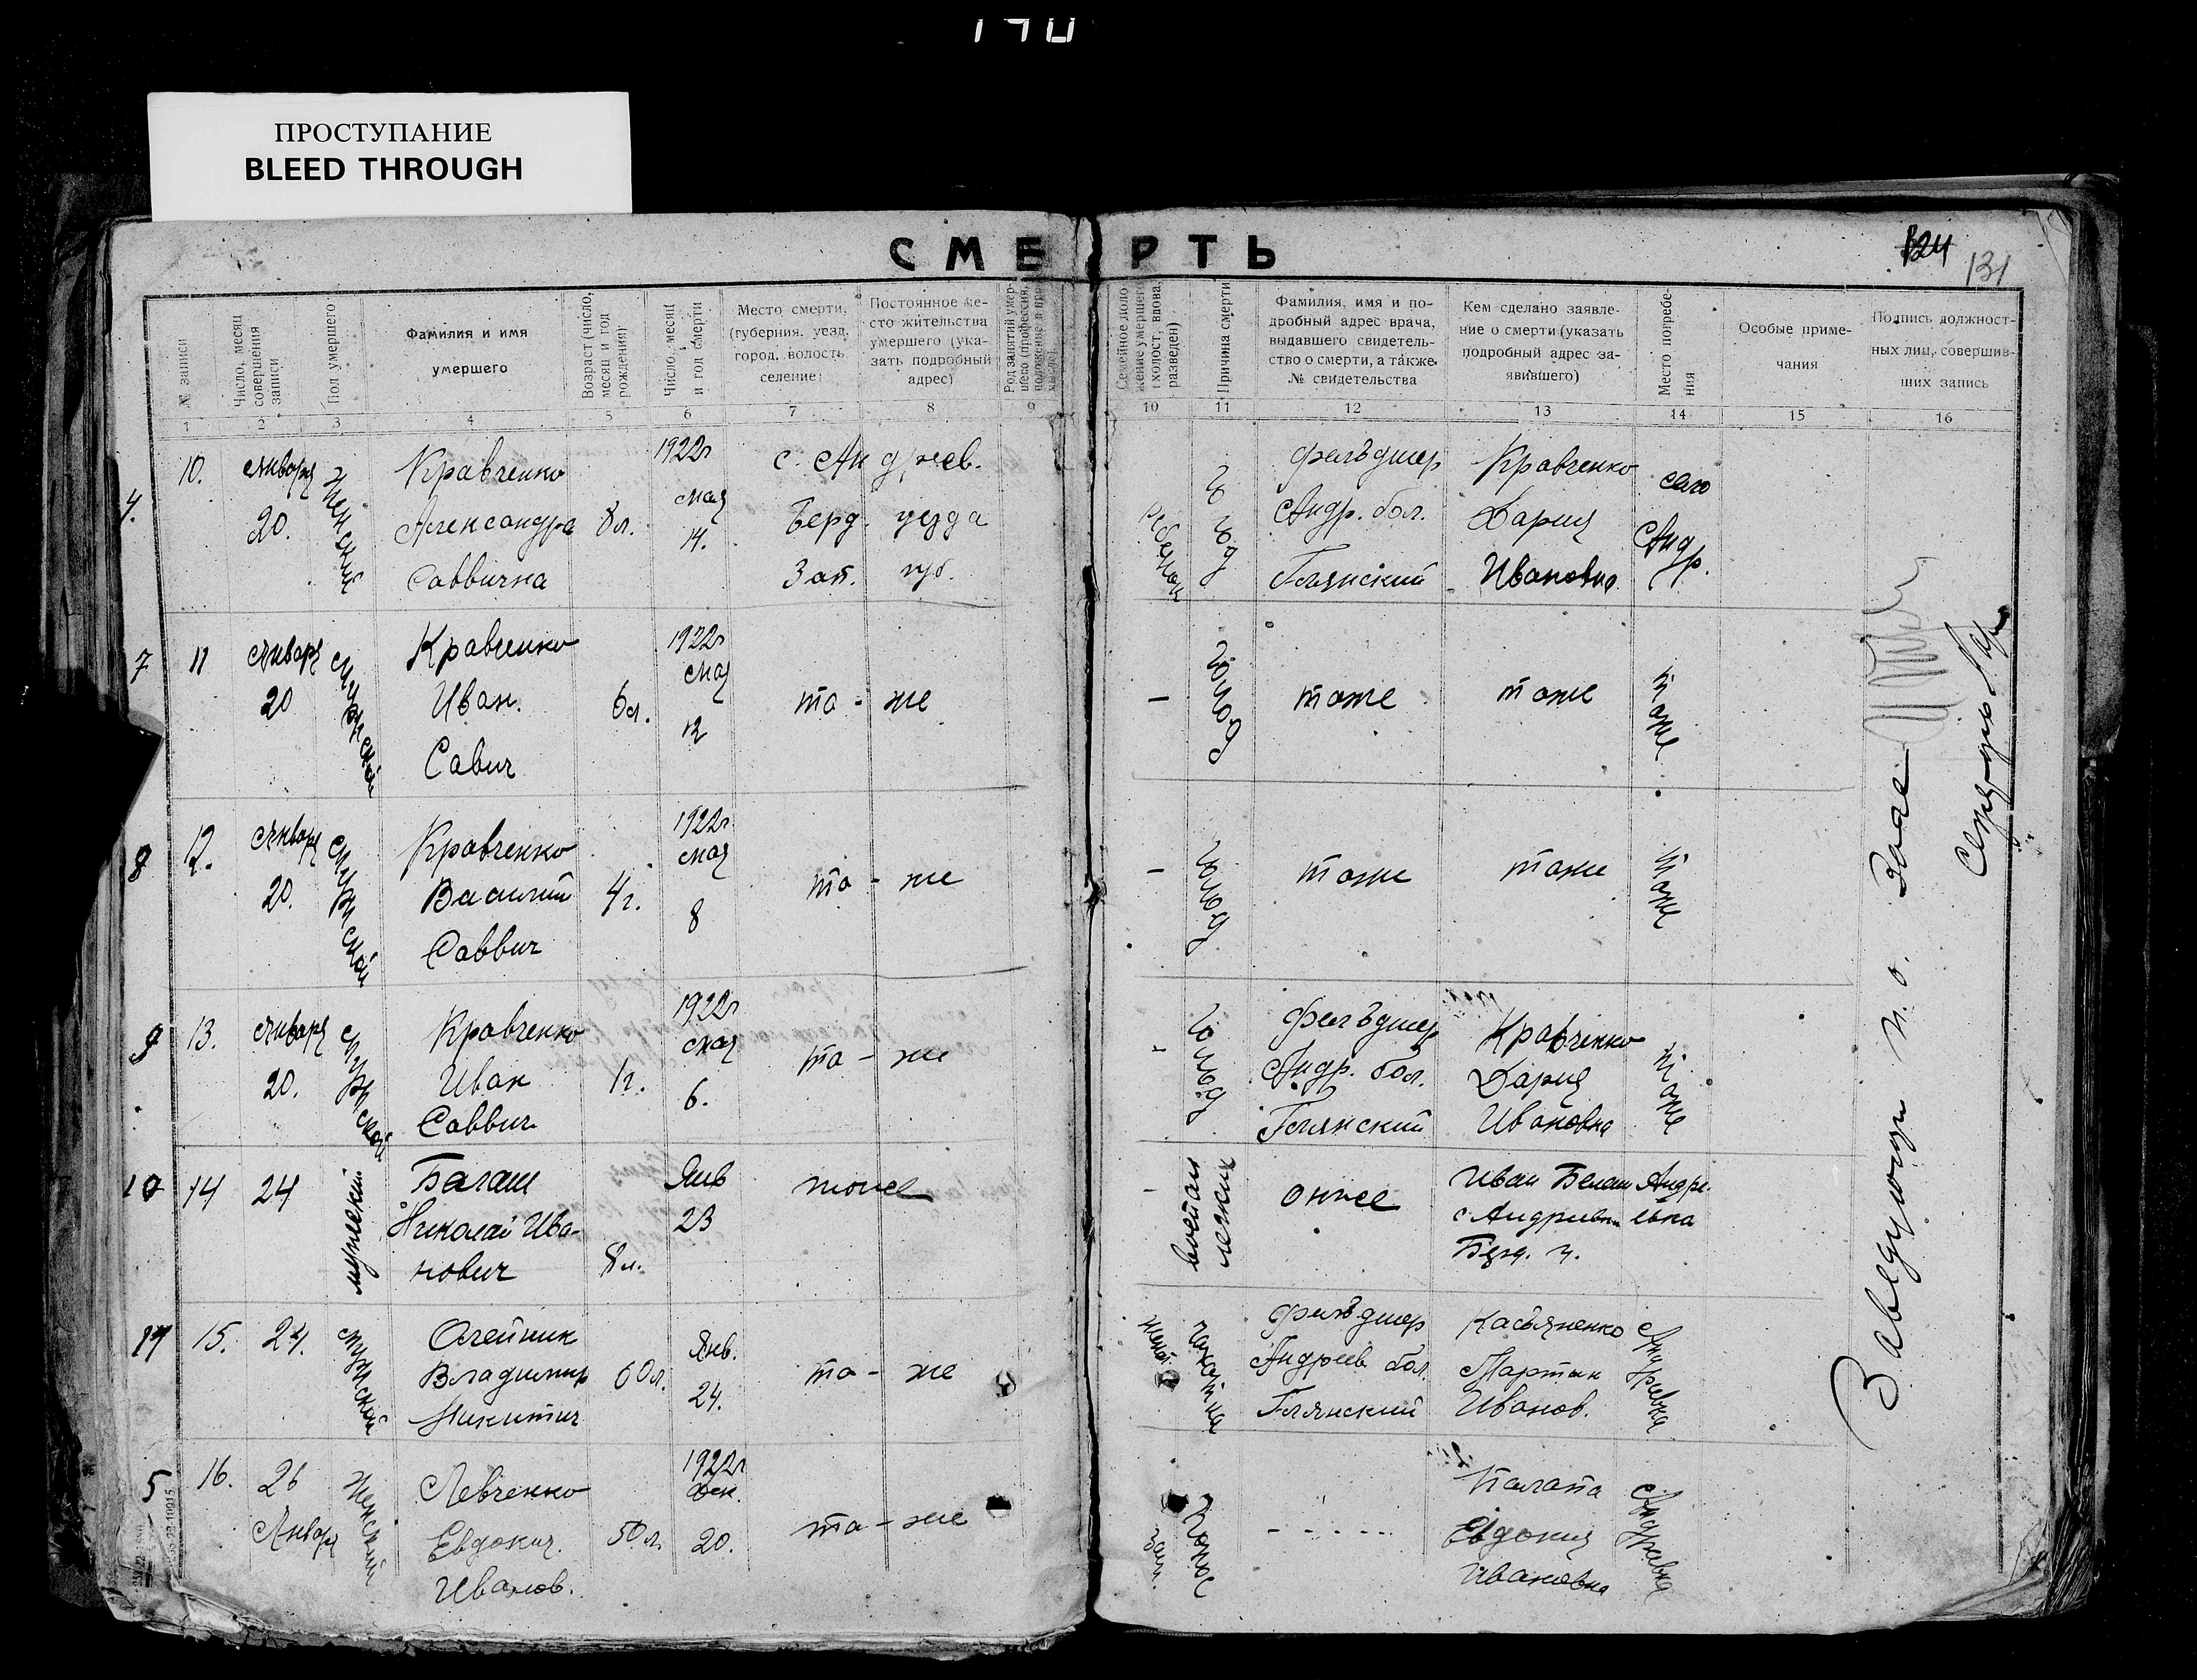 ПРОСТУПАНИЕ
BLEED THROUGH
СМЕРТЬ
124
131
№ записи
Число, месяц совершения записи
Пол умершего
Фамилия и имя умершего
Возраст (число, месяц и год рождения)
Число, месяц и год смерти
Место смерти, (губерния, уезд, город, волость селение)
Постоянное место жительства умершего (указать подробный адрес)
Причина смерти
Фамилия, имя и подробный адрес врача, выдавшего свидетельство о смерти, а также № свидетельства
Кем сделано заявление о смерти (указать подробный адрес заявившего)
Место погребения
Особые примечания
Подпись должностных лиц, совершивших запись
1 2 3 4 5 6 7 8 9 10 11 12 13 14 15 16
4. 10. Января 20. Женский Кравченко Александра Саввична 8 л. 1922 г мая 14. с. Андреев. Берд. уезда Зап. губ. ребенок фельдшер Андр. бол. Кравченко Дария Ивановна село Андр.
7 11 Января 20 Мужской Кравченко Иван. Савич 6 л. 1922 г мая 12 то-же - голод тоже тоже тоже
8 12. Января 20. Мужской Кравченко Василий Саввич 4 г. 1922 г мая 8 то-же - голод тоже тоже тоже
9 13. Января 20. Мужской Кравченко Иван Саввич 1 г. 1922 г мая 6. то-же - голод фельдшер Андр. бол. Кравченко Дария Ивановна тоже
10 14 24 мужский Белаш Николай Иванович 8 л. Янв 23 тоже - воспал легких он же Иван Белаш с Андриевка
15. 24. Мужской Олейник Владимир Никитич 60 л. Янв. 24. то-же фельдшер Андреев. бол. Касьяненко Мартын Иванов. Андревка
5 16. 26 Января Женский Левченко Евдокия Иванов. 50 л. 1922 г 20. то-же - - - - - - Евдокия Ивановна Андревка
Заведующи п. о. Загс
Секретарь